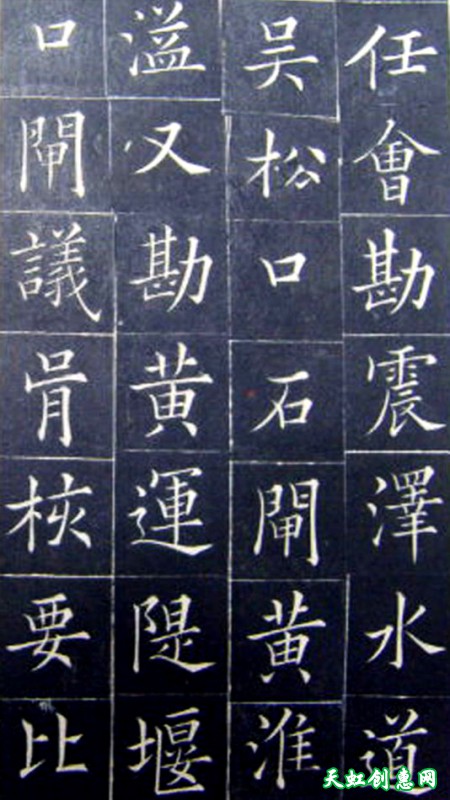 任會勘震澤水道
吳松口石閘黃淮
溢又勘黃運隄堰
口閘議骨㭘要比
天虹创惠网